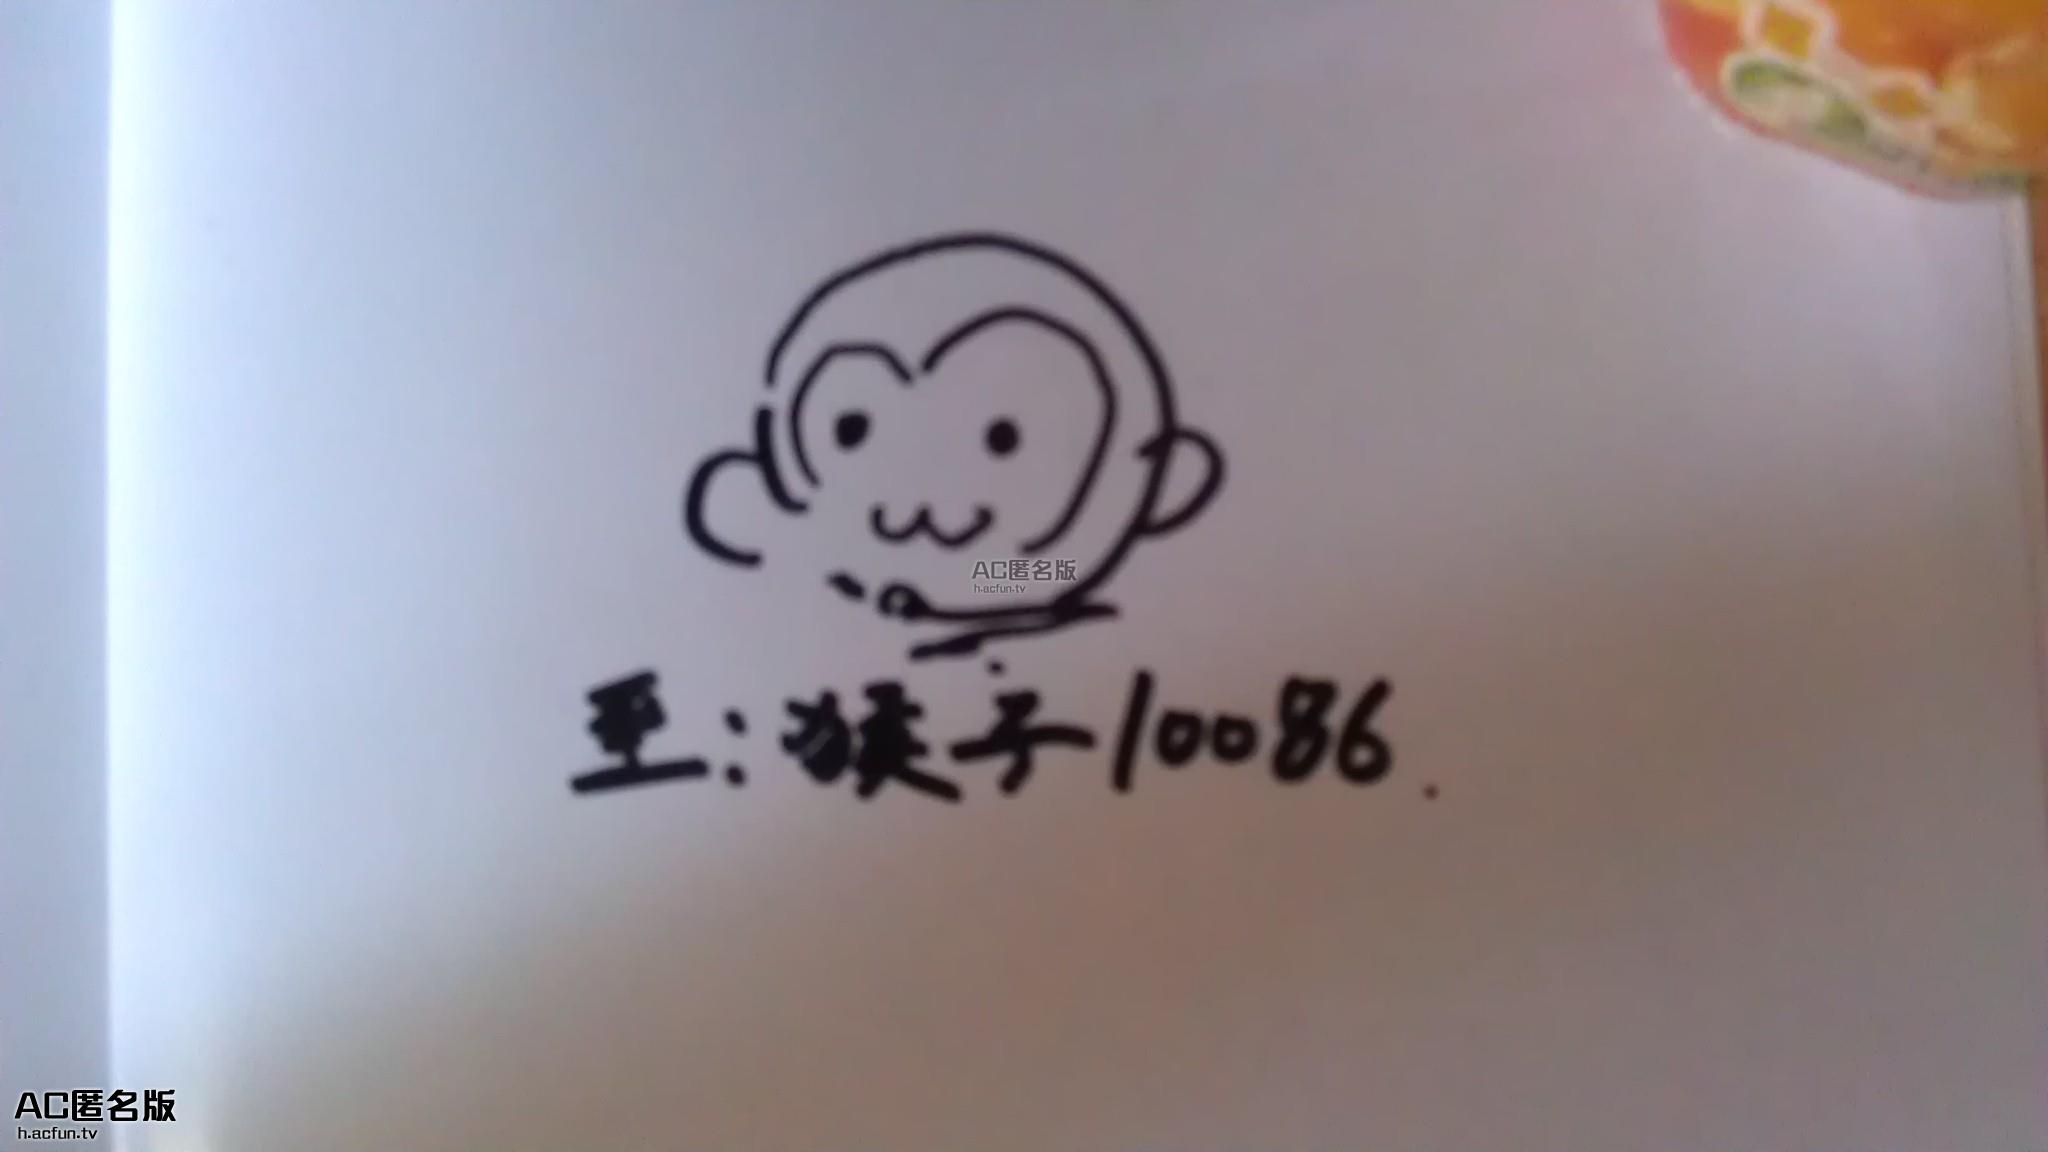 AC匿名版
h.acfun.tv
至:猴子10086.
AC匿名版
h.acfun.tv